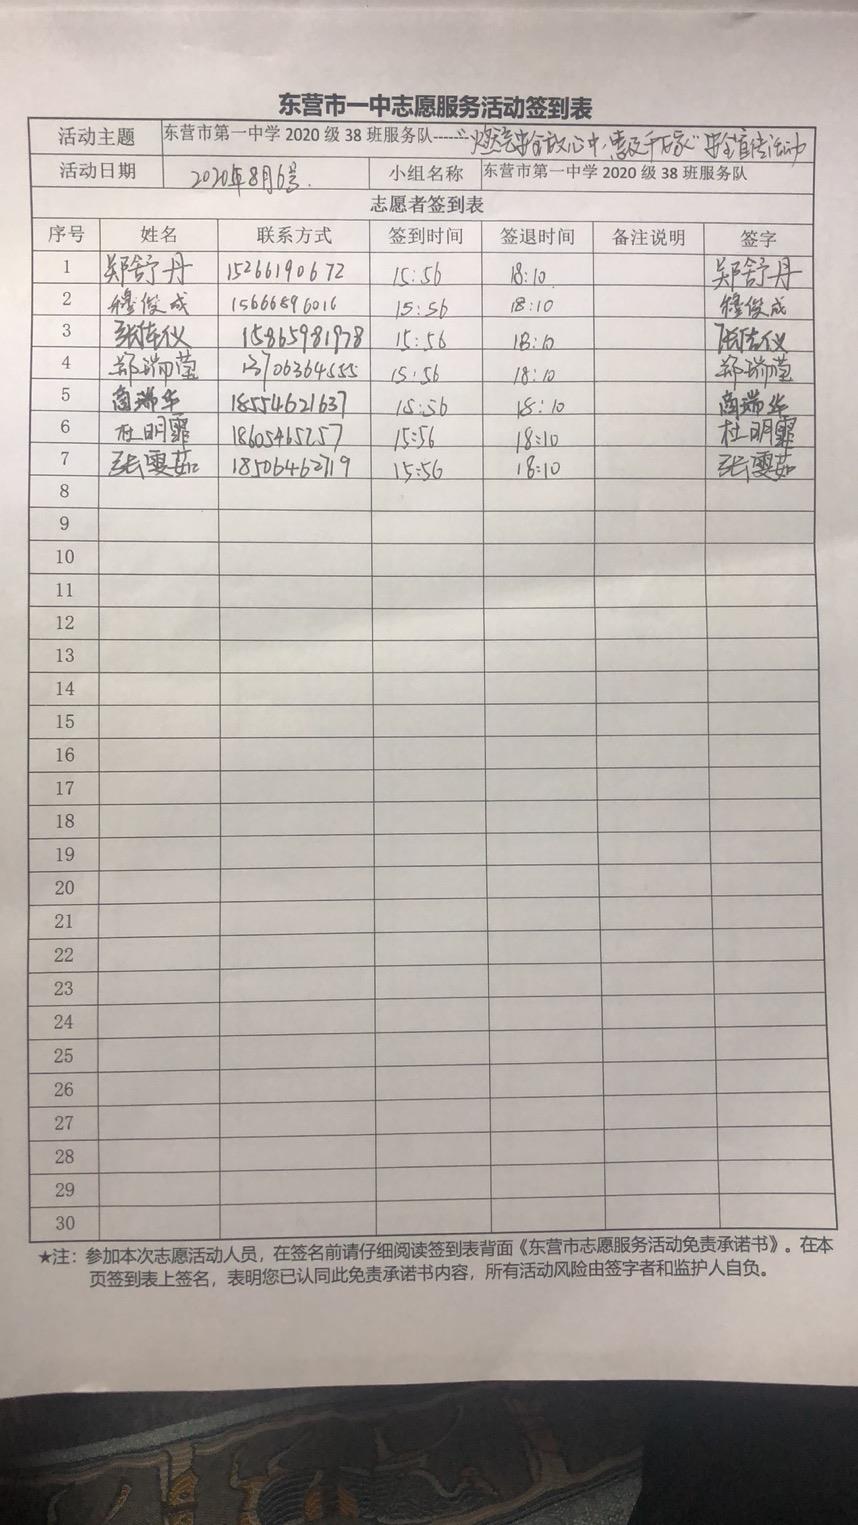 东营市一中志愿服务活动签到表
活动主题 东营市第一中学 2020 级 38 班服务队-----“燃气安全放心中,惠及千万家”安全宣传活动
活动日期 2020年8月6号. 小组名称 东营市第一中学 2020 级 38 班服务队
志愿者签到表
序号 姓名 联系方式 签到时间 签退时间 备注说明 签字
1 郑舒丹 15266190672 15:56 18:10 郑舒丹
2 穆俊成 15666896016 15:56 18:10 穆俊成
3 15865981978 15:56 18:10
4 郑瑞莹 13706364555 15:56 18:10 郑瑞莹
5 商瑞华 18554621637 15:56 18:10 商瑞华
6 杜明霏 15:56 18:10 杜明霏
7 张雯茹 18506462719 15:56 18:10 张雯茹
8
9
10
11
12
13
14
15
16
17
18
19
20
21
22
23
24
25
26
27
28
29
30
★注：参加本次志愿活动人员，在签名前请仔细阅读签到表背面《东营市志愿服务活动免责承诺书》。在本
页签到表上签名，表明您已认同此免责承诺书内容，所有活动风险由签字者和监护人自负。